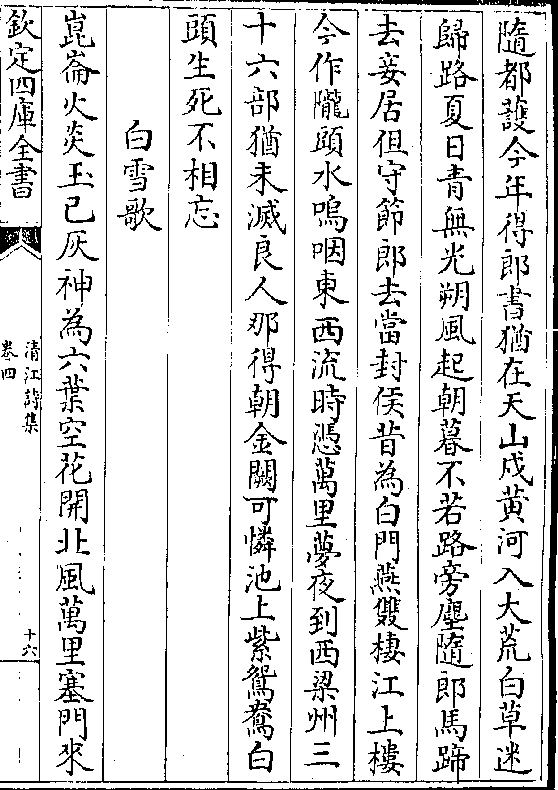 隨都護今年得郎書猶在天山戍黄河入大荒白草迷
歸路夏日青無光朔風起朝暮不若路旁塵隨郎馬蹄
去妾居但守節郎去當封侯昔為白門燕雙棲江上樓
今作隴頭水嗚咽東西流時憑萬里夢夜到西梁州三
十六部猶未滅良人那得朝金闕可憐池上紫鴛鴦白
頭生死不相忘
白雪歌
崑崙火炎玉已灰神為六葉空花開北風萬里塞門來
欽定四庫全書
清江詩集
卷四
十六